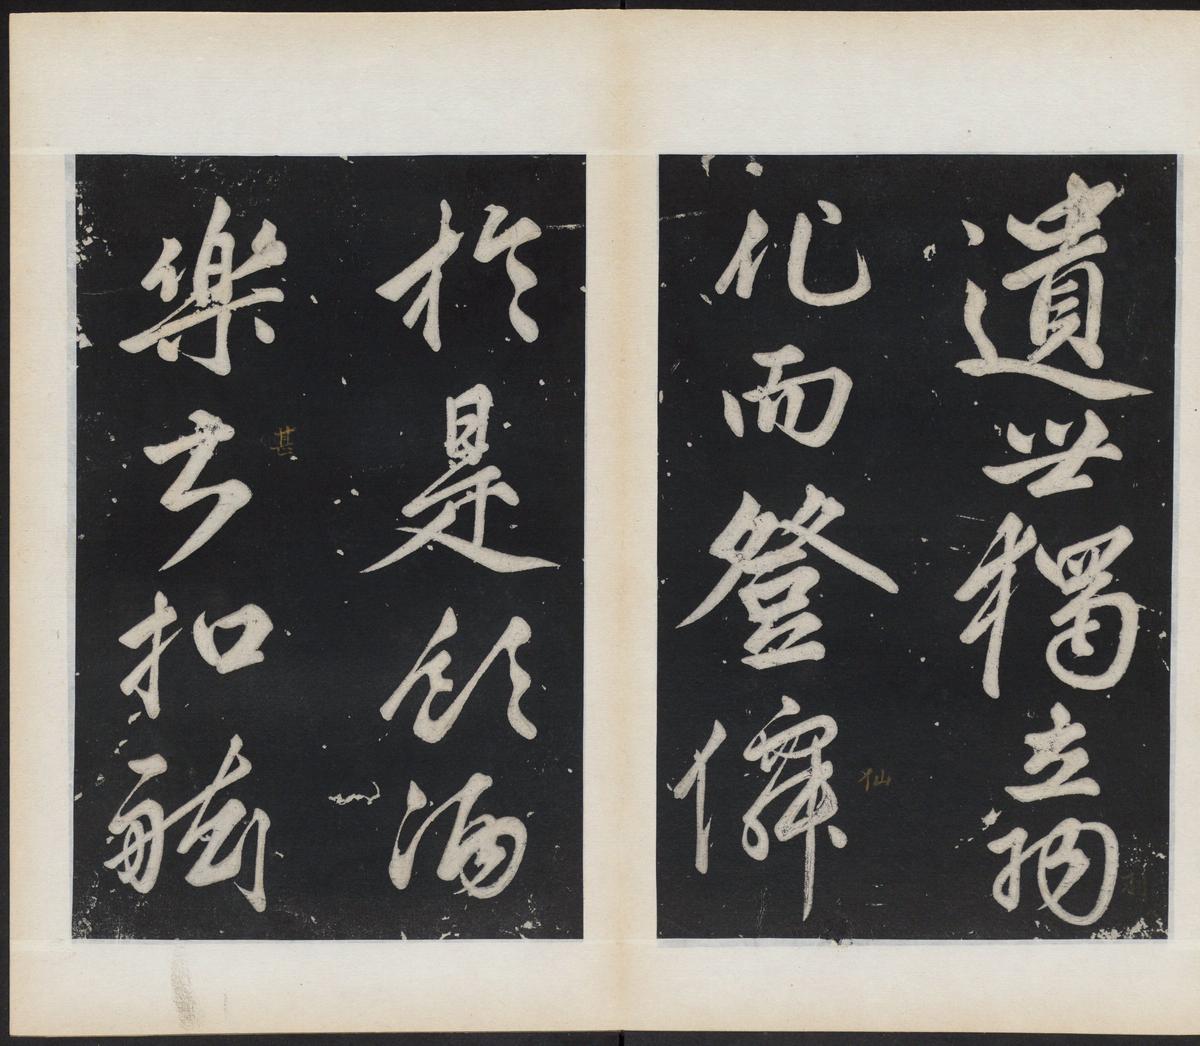 遺世獨立羽
化而登僊
仙
於是飲酒
樂甚扣舷
甚